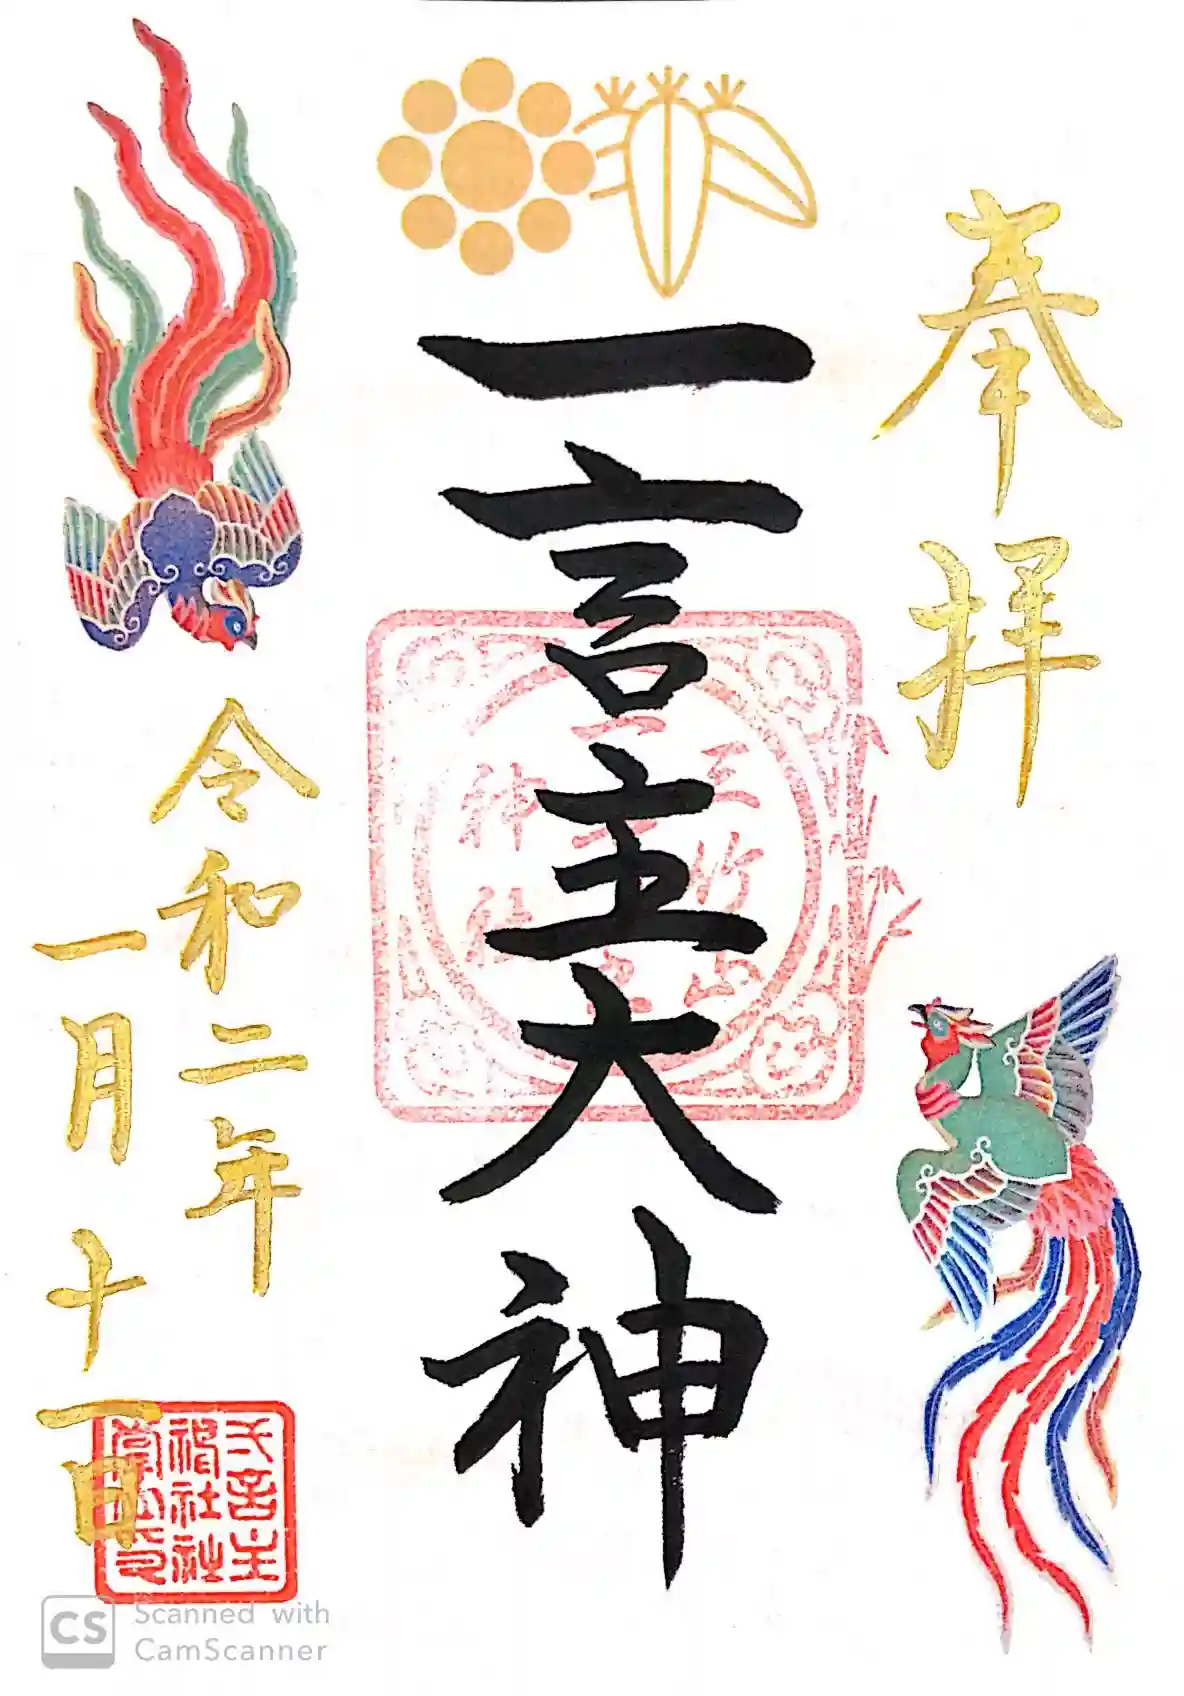 奉拝
一言主大神
三竹山
一言主
神社
令和二年
一月十一日
CS Scanned with
CamScanner